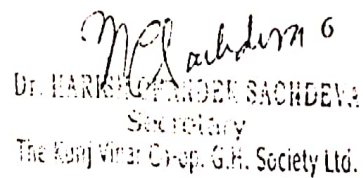 Sachdeva
Dr. HARISH CHANDER SACHDEVA
Secretary
The Kunj Vihar Co-op. G.H. Society Ltd.